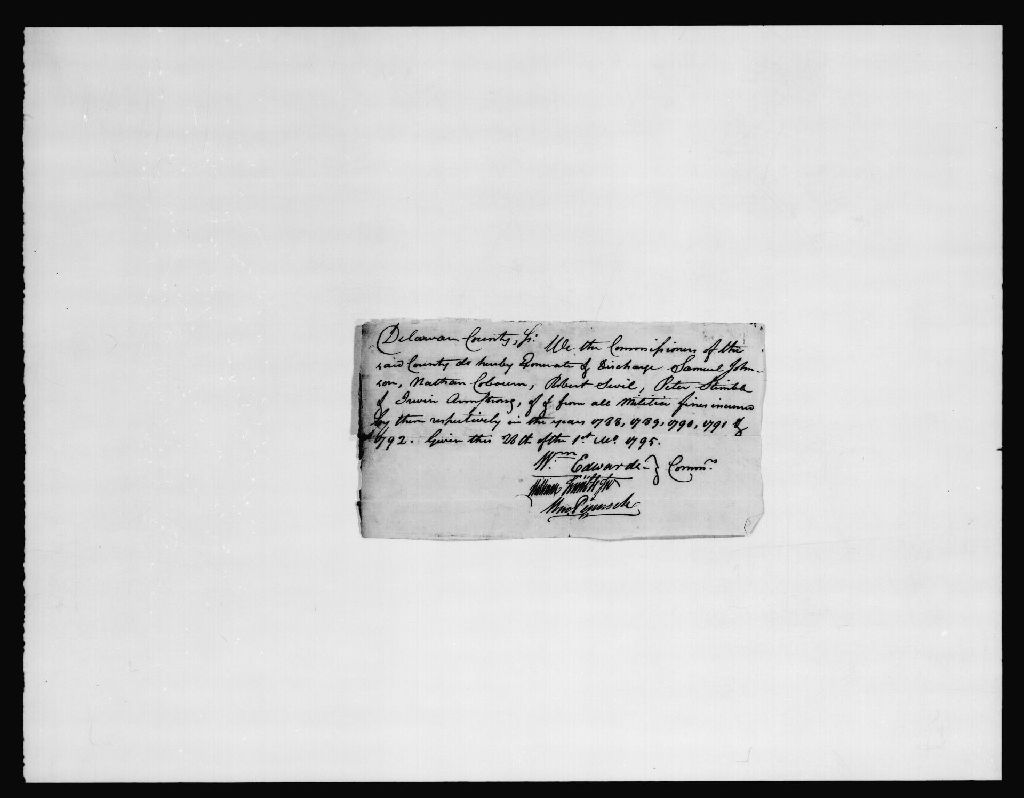 Delaware County, Ss. We the Commissioners of the
said County do hereby Exonerate & Discharge Samuel John-
son, Nathan Cobourn, Robert Sevil, Peter
& Irwin Armstrong, of & from all Militia fines incurred
by them respectively in the years 1788, 1789, 1790, 1791 &
1792. Given this 26th of the 1st Mo 1795.
Wm Edwards } Commrs
William Jnr